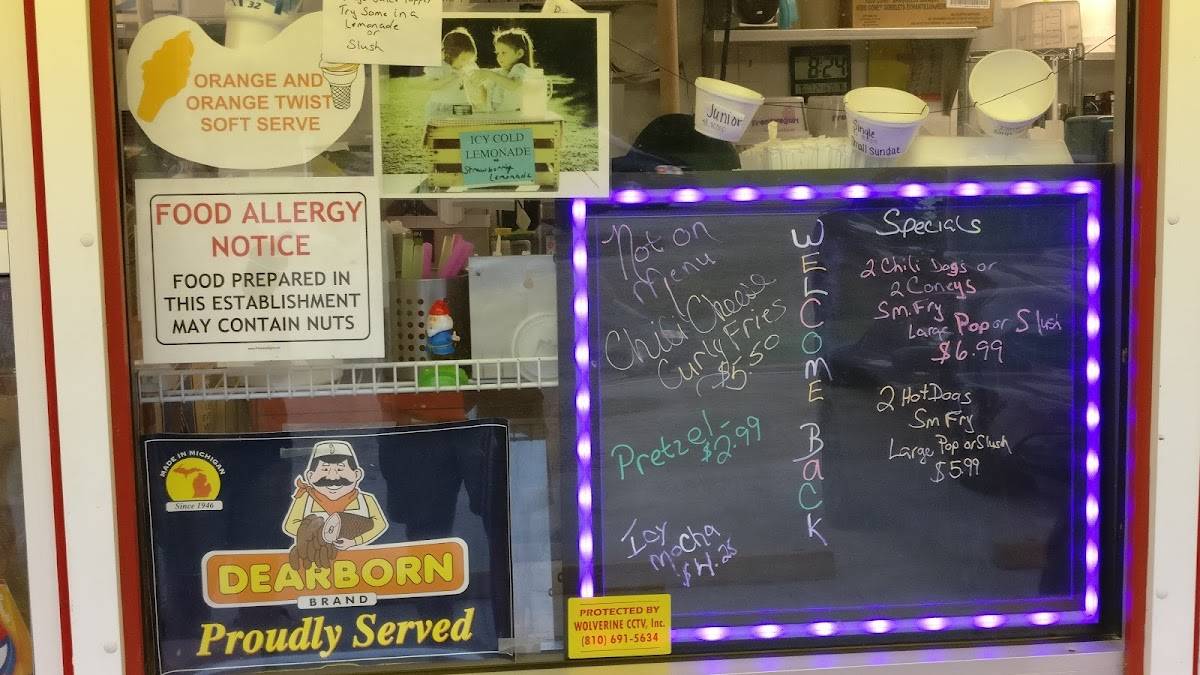 32
Try Some in a
Lemonade
or
Slush
ORANGE AND
ORANGE TWIST
SOFT SERVE
ICY COLD
LEMONADE
Strawberry
Lemonade
8:24
Junior
Single
Small Sundae
FOOD ALLERGY
NOTICE
FOOD PREPARED IN
THIS ESTABLISHMENT
MAY CONTAIN NUTS
MADE IN MICHIGAN
Since 1946
DEARBORN
BRAND
Proudly Served
PROTECTED BY
WOLVERINE CCTV, Inc.
(810) 691-5634
Not on
Menu
Chili Cheese
Curly Fries
$5.50
Pretzel-
$2.99
Icy
Mocha
$4.25
WELCOME BACK
Specials
2 Chili Dogs or
2 Coneys
Sm. Fry
Large Pop or Slush
$6.99
2 Hot Dogs
Sm Fry
Large Pop or Slush
$5.99